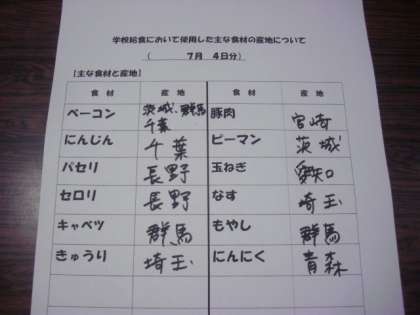 学校給食において使用した主な食材の産地について
( 7月 4日分)
【主な食材と産地】
食材 産地 食材 産地
ベーコン 茨城、群馬 千葉 豚肉 宮崎
にんじん 千葉 ピーマン 茨城
パセリ 長野 玉ねぎ 愛知
セロリ 長野 なす 埼玉
キャベツ 群馬 もやし 群馬
きゅうり 埼玉 にんにく 青森